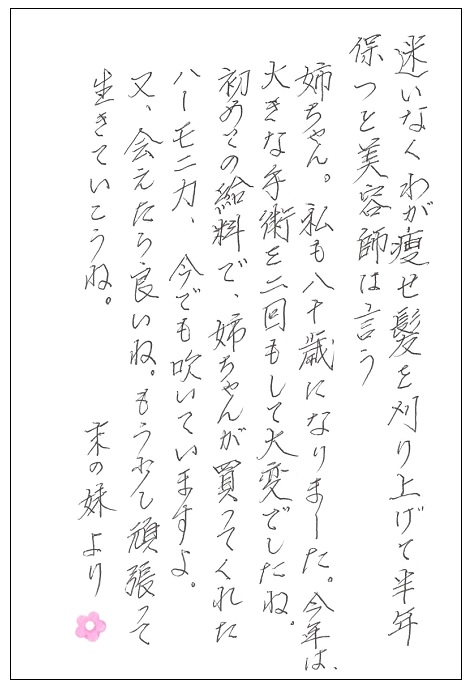 迷いなくわが痩せ髪を刈り上げて半年
保つと美容師は言う
姉ちゃん。私も八十歳になりました。今年は、
大きな手術を二回もして大変でしたね。
初めての給料で、姉ちゃんが買ってくれた
ハーモニカ、今でも吹いていますよ。
又、会えたら良いね。もう少し頑張って
生きていこうね。
末の妹より